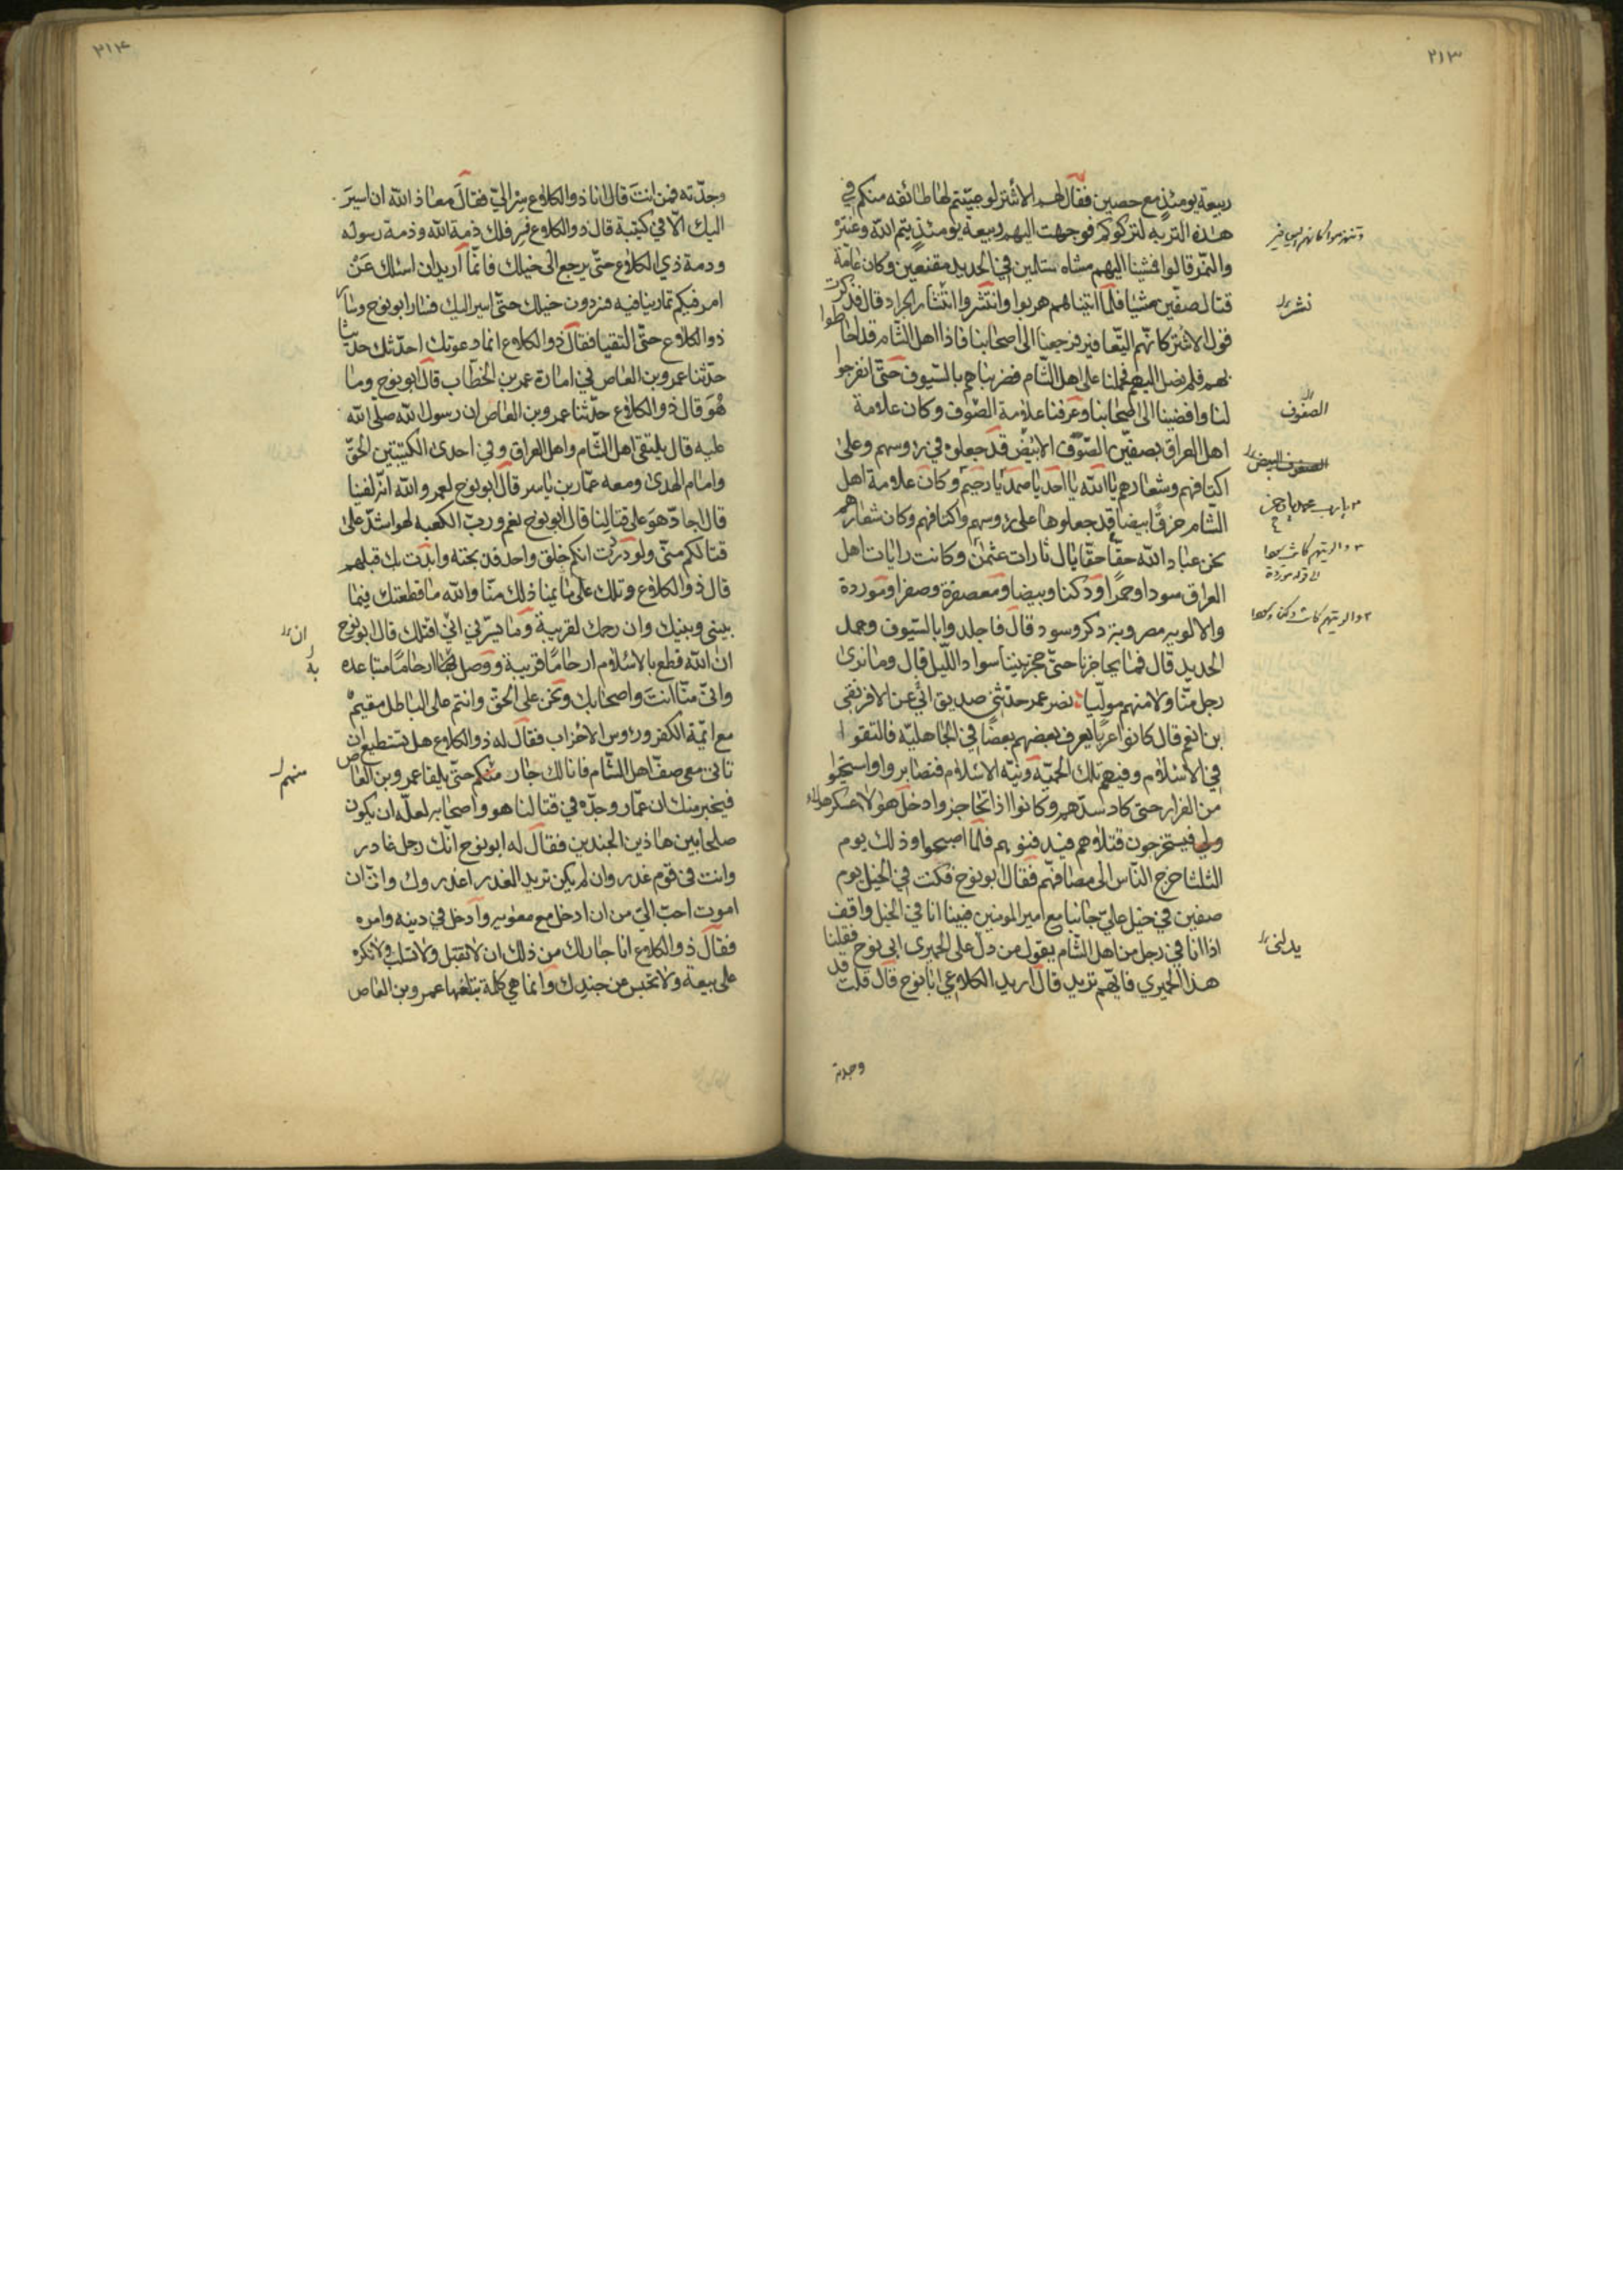 ٢١٣
ربيعة يومئذ مع حصين فقال لهم الاشتر لو جيتم لها طائفه منكم في
هذه التربه لتركوكم فوجهت اليهم ربيعة يومئذ تيم الله وعنزة
والنمر قالوا فمشينا اليهم مشاه مستلمين في الحديد مقنعين وكان عامة
قتال صفين مشيا فلما اتيناهم هربوا وانتشروا انتشار الجراد قال فذكرت
قول الاشتر كانهم اليعافير فرجعنا الى اصحابنا فاذا اهل الشام قد احاطوا
بهم فلم نصل اليهم فحملنا على اهل الشام فضربناهم بالسيوف حتى انفرجوا
لنا وافضينا الى اصحابنا وعرفنا علامة الصوف وكان علامة
اهل العراق بصفين الصوف الابيض قد جعلوه في رؤسهم وعلى
اكتافهم وشعارهم يا الله يا احد يا صمد يا رحيم وكان علامة اهل
الشام خرقا بيضا قد جعلوها على رؤسهم واكتافهم وكان شعارهم
نحن عباد الله حقا حقا يال ثارات عثمن وكانت رايات اهل
العراق سودا وحمرا ودكنا وبيضا ومعصفرة وصفرا وموردة
والالويه مضروبة دكر وسود قال فاجلدوا بالسيوف وعمد
الحديد قال فما تحاجزنا حتى حجز بيننا سواد الليل قال وما نرى
رجل منا ولا منهم موليا نصر عمر حدثني صديق ابي عن الافريقي
بن انعم قال كانوا عربا يعرف بعضهم بعضا في الجاهلية فالتقوا
في الاسلام وفيهم تلك الحمية ونية الاسلام فتصابروا واستحيوا
من الفرار حتى كاد وكانوا اذا تحاجزوا دخل هؤلا عسكر هؤلاء
فيستخرجون قتلاهم فيدفنونهم فلما اصبحوا وذلك يوم
الثلثا خرج الناس الى مصافهم فقال ابو نوح فكنت في الخيل يوم
صفين في خيل علي جانبا مع امير المومنين فبينا انا في الخيل واقف
اذا انا في رجل من اهل الشام يقول من دل على الحميري ابي نوح فقلنا
هذا الحميري فايهم تريد قال اريد الكلاعي ابا نوح قال قلت قد
نشر
الصفوف
يدلنى
وجدته
٢١٤
وجدته فمن انت قال انا ذو الكلاع سر الي فقال معاذ الله ان اسير
اليك الا في كتيبة قال ذو الكلاع فسر فلك ذمة الله وذمة رسوله
ودمة ذي الكلاع حتى يرجع الى خيلك فانما اريد ان اسئلك عن
امر فيكم تمارينا فيه فسر دون خيلك حتى اسير اليك فسار ابو نوح وسار
ذو الكلاع حتى التقيا فقال ذو الكلاع انما دعوتك احدثك حديثا
حدثنا عمرو بن العاص في امارة عمر بن الخطاب قال ابو نوح وما
هو قال ذو الكلاع حدثنا عمرو بن العاص ان رسول الله صلى الله
عليه قال يلتقى اهل الشام واهل العراق وفي احدى الكتيبتين الحق
وامام الهدى ومعه عمار بن ياسر قال ابو نوح لعمر والله انه لفينا
قال اجاد هو على قتالنا قال ابو نوح نعم ورب الكعبه لهو اشد على
قتالكم منى ولوددت انكم خلق واحد فذبحته وابدت بك قبلهم
قال ذو الكلاع ويلك علام تمنينا ذلك منا والله ما قطعتك فيما
بينى وبينك وان رحمك لقريبة وما يسرني اني اقتلك قال ابو نوح
ان الله قطع بالاسلام ارحاما قريبة ووصل بها ارحاما متباعده
وانى منا انت واصحابك ونحن على الحق وانتم على الباطل مقيم
مع ائمة الكفر ورؤس الاحزاب فقال له ذو الكلاع هل تستطيع ان
تاتى معى صف اهل الشام فانا لك جار منكم حتى يلقا عمرو بن العاص
فيخبر منك ان عمار وجده في قتالنا هو واصحابه لعله ان يكون
صلحا بين هاذين الجندين فقال له ابو نوح انك رجل غادر
وانت فى قوم غدر وان لم يكن تريد الغدر اغدروك وانى ان
اموت احب الي من ان ادخل مع معويه وادخل في دينه وامره
فقال ذو الكلاع انا جار لك من ذلك ان لا تقتل ولا تسلب ولا تكره
على بيعة ولا تحبس من جندك وانما هي كلمة تبلغها عمرو بن العاص
ان
به
منهم